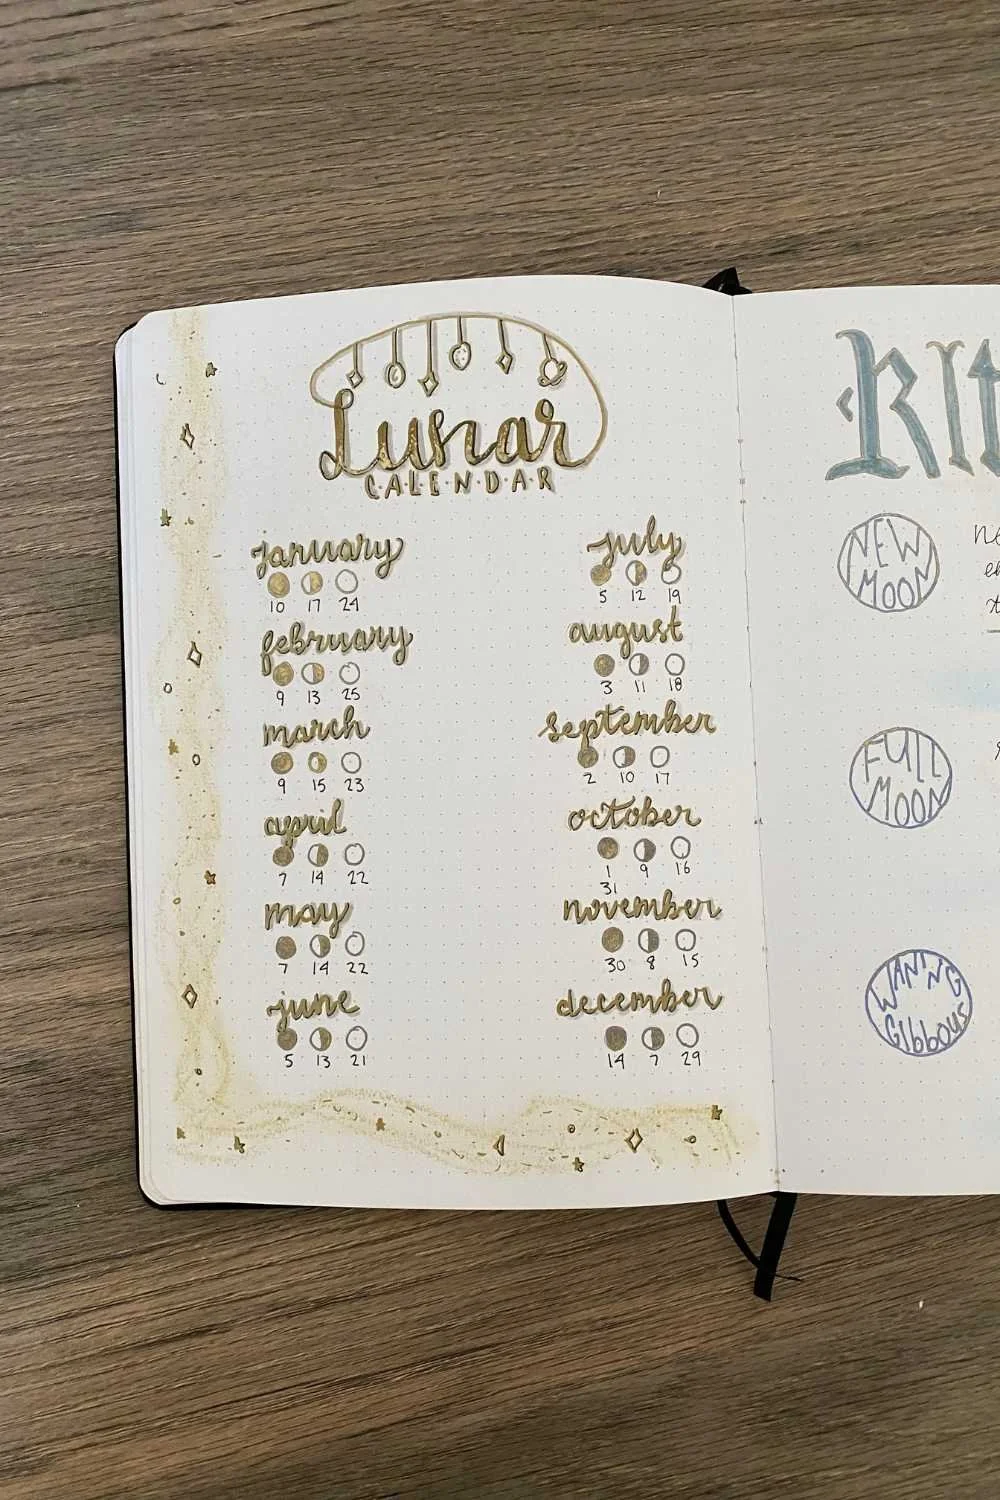 Lunar
CALENDAR
january
10 17 24
february
9 13 25
march
9 15 23
april
7 14 22
may
7 14 22
june
5 13 21
july
5 12 19
august
3 11 18
september
2 10 17
october
1 9 16
31
november
30 8 15
december
14 7 29
Rit
NEW
MOON
FULL
MOON
WANING
GIbbous